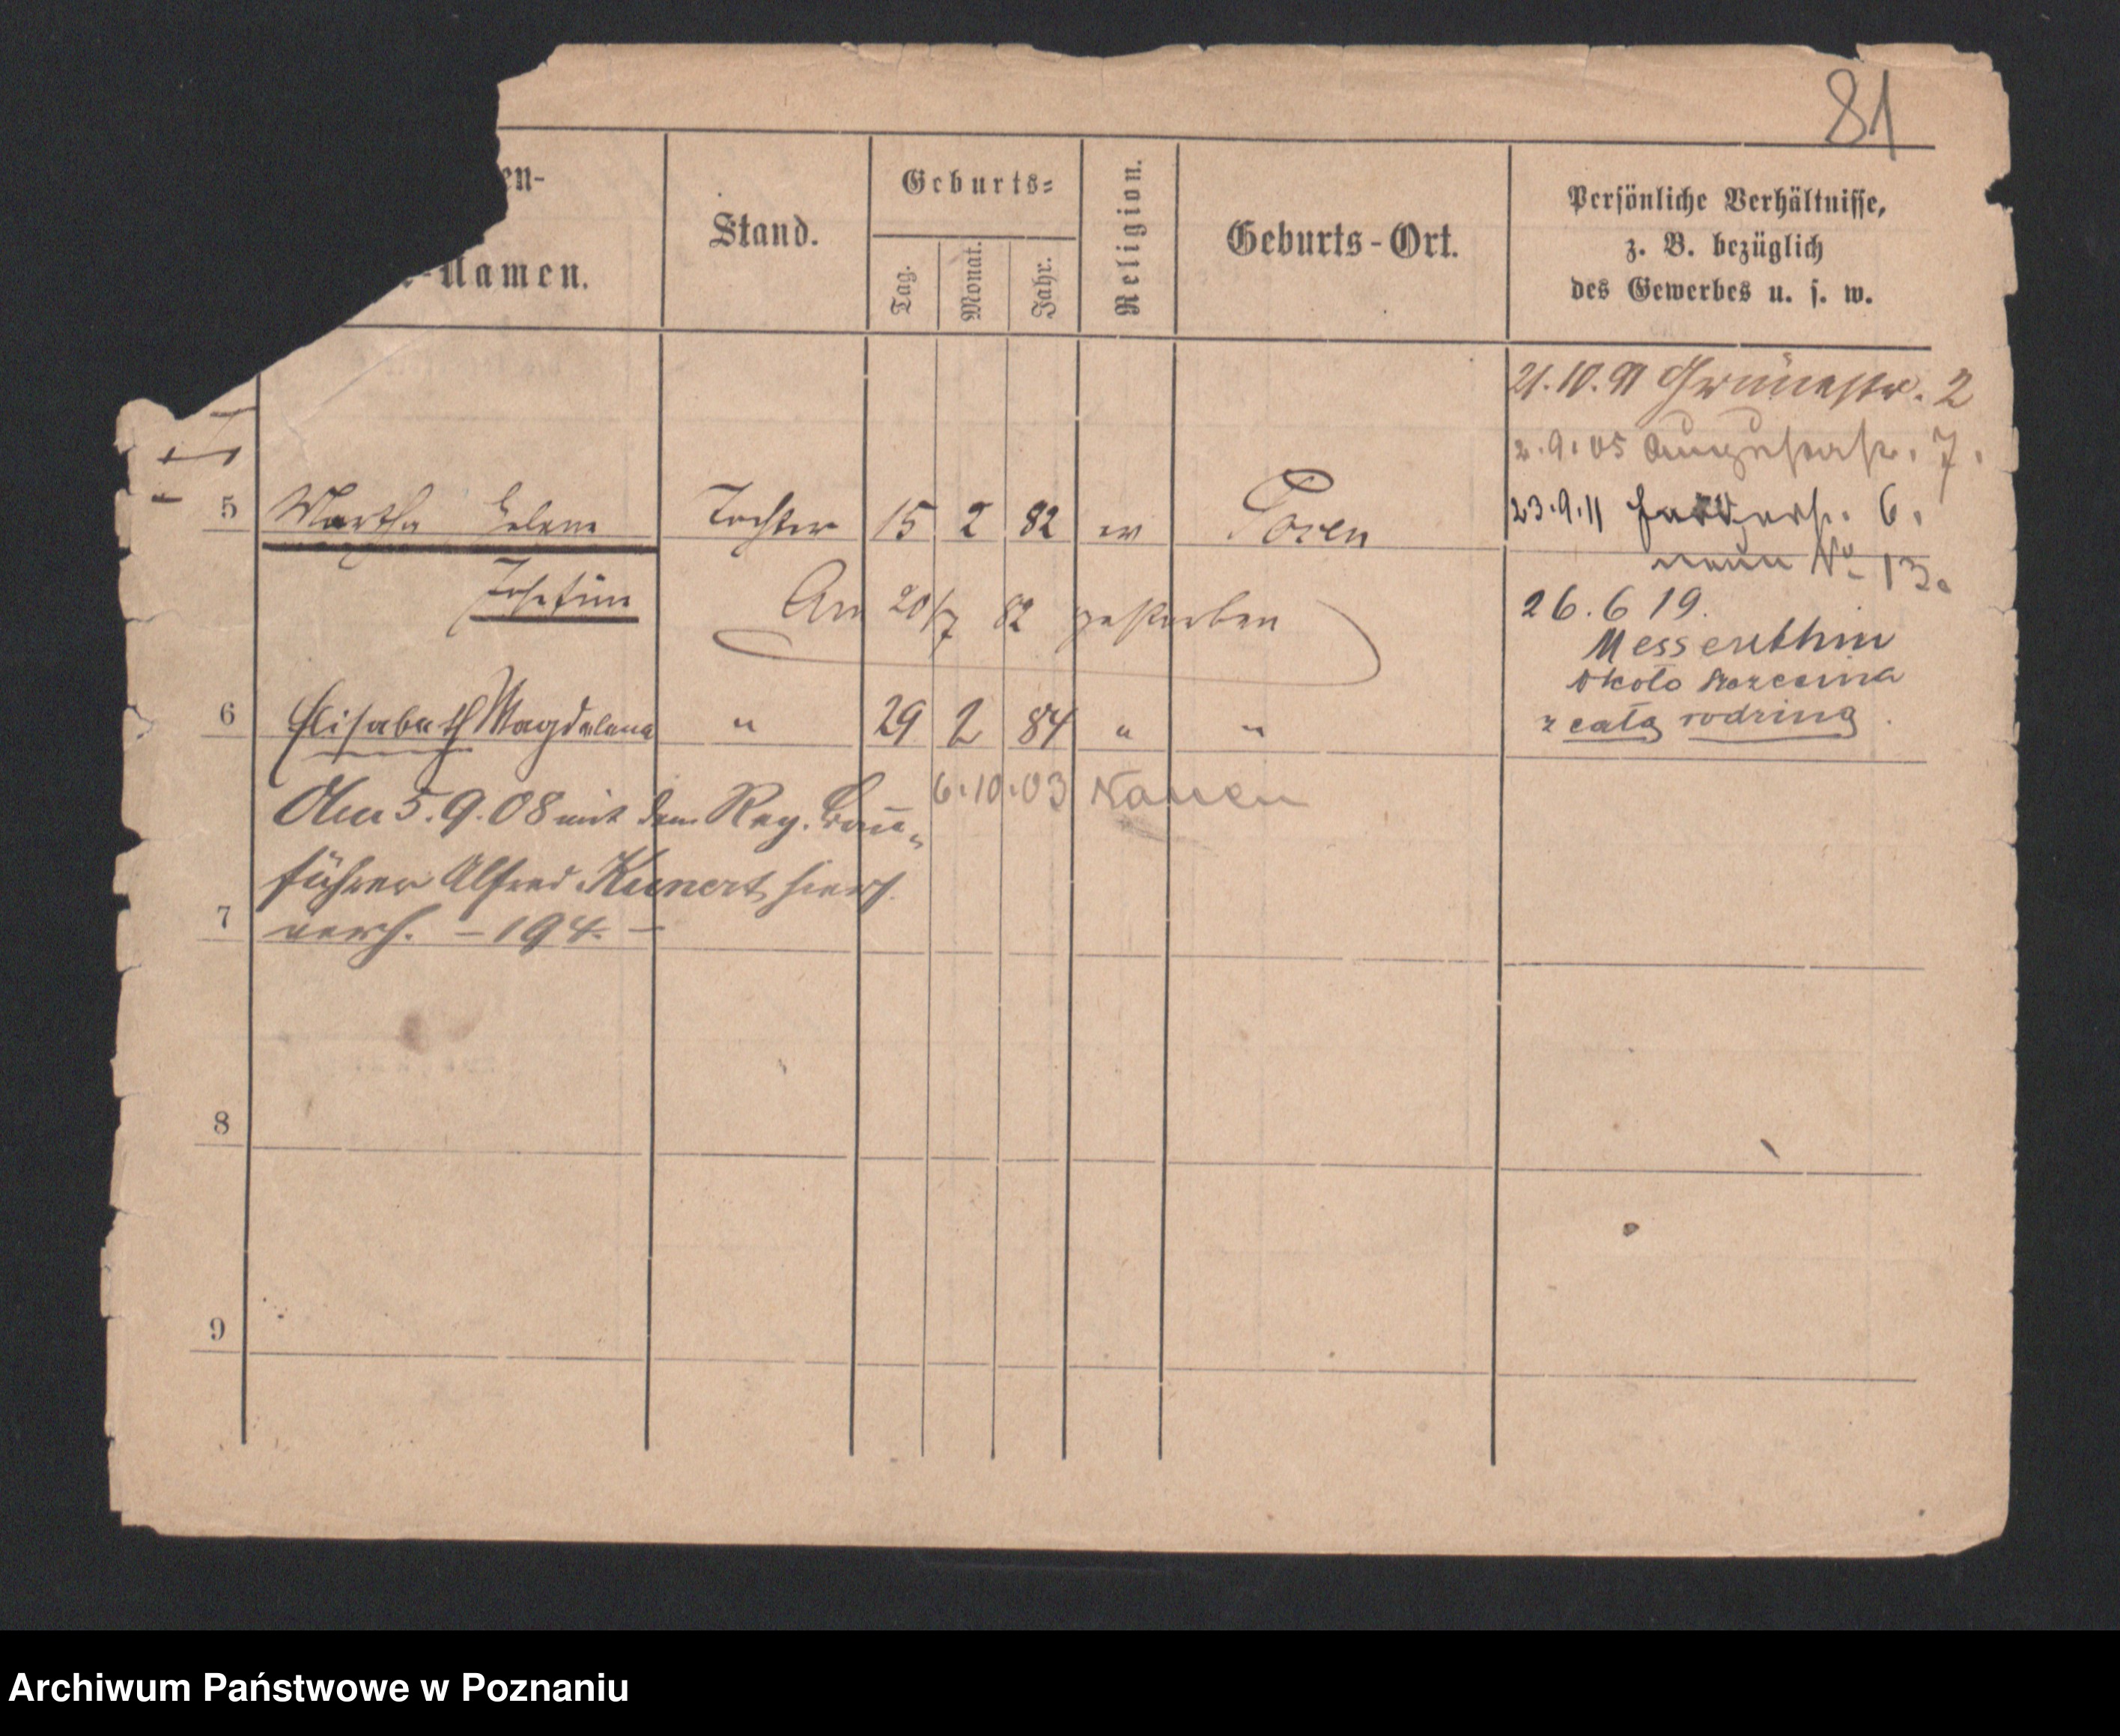 81
en-
-Namen.
Stand.
Geburts-
Tag.
Monat.
Jahr.
Religion.
Geburts-Ort.
Persönliche Verhältnisse,
z. B. bezüglich
des Gewerbes u. s. w.
21.10.91 Grünestr. 2
2.9.05 Augustastr. 7.
5 Martha Helene Tochter 15 2 82 ev Posen
23.9.11 6.
neue No 13.
Josefine Am 20/7 82 gestorben
26.6 19.
Messenthin
około Szczecina
z całą rodziną.
6 Elisabeth Magdalena " 29 2 84 " "
6.10.03 Nauen
Am 5.9.08 mit dem Reg. Bau-
führer Alfred Kunert hier
verh. - 194. -
7
8
9
Archiwum Państwowe w Poznaniu